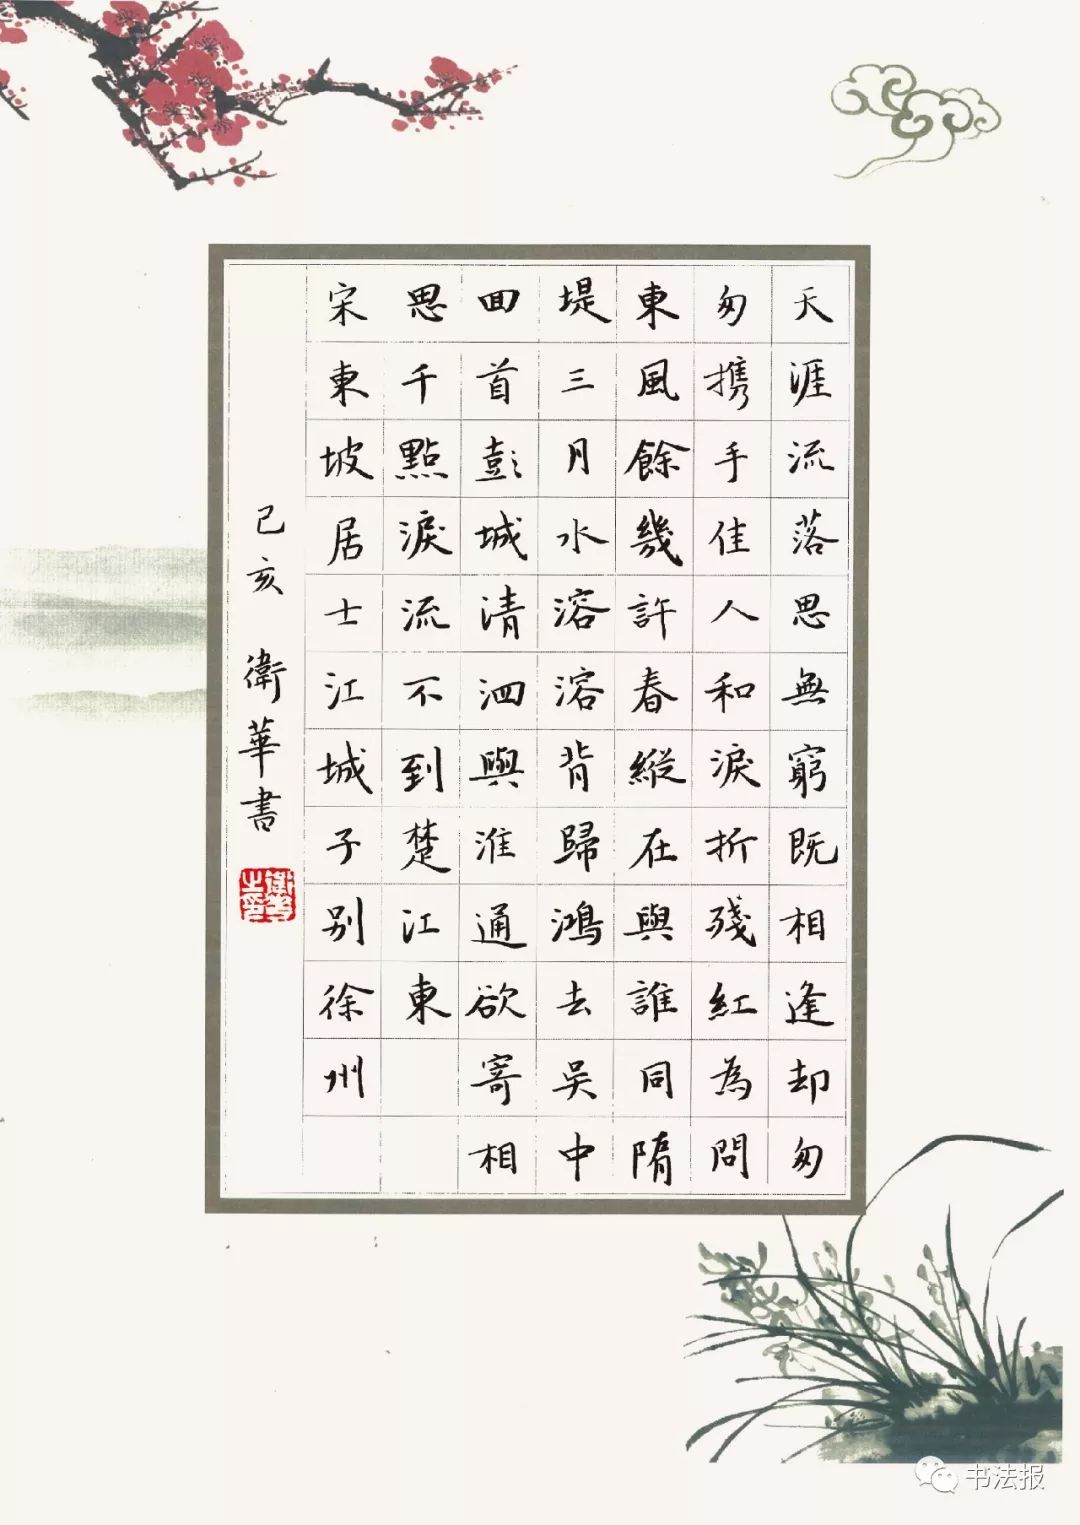 天涯流落思無窮既相逢却匆
匆携手佳人和淚折殘紅為問
東風餘幾許春縱在與誰同隋
堤三月水溶溶背歸鴻去吴中
回首彭城清泗與淮通欲寄相
思千點淚流不到楚江東
宋東坡居士江城子别徐州
己亥 衛華書
书法报